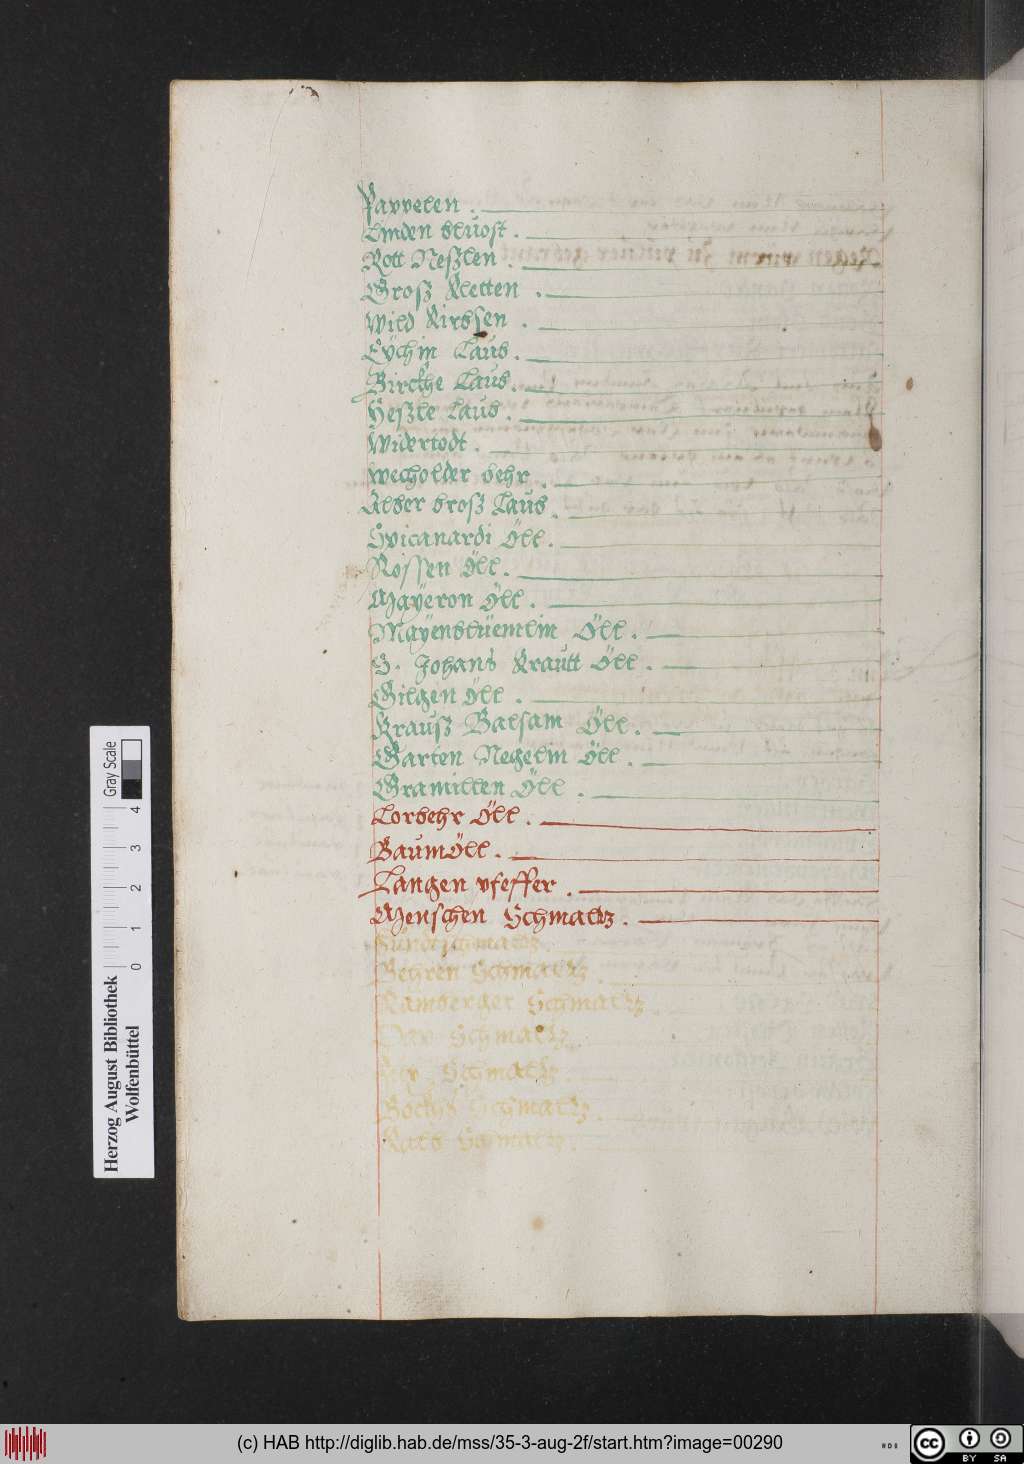 Pappelen .
Linden bluost .
Rott Neßlen .
Groß Kletten .
Wild Kirbsen .
Eÿchin Laub .
Birckhe Laub .
Heßle Laub .
Widertodt .
Wecholder behr .
Alber broß Laub .
Spicanardi Öll .
Rossen Öll .
Mayeron Öll .
Mayenblüemlin Öll .
S. Johans Krautt Öll .
Gilgen Öll .
Krauß Balsam Öll .
Garten Negelin Öll .
Gramillen Öll .
Lorbehr Öll .
Baumöll .
Langen pfeffer .
Menschen Schmaltz .
Hundtschmaltz
Behren Schmaltz .
Kamberger Schmaltz
Schmaltz
Schmaltz
Bockhs Schmaltz .
Kalb Schmaltz .
Herzog August Bibliothek
Wolfenbüttel
0 1 2 3 4
Gray Scale
(c) HAB http://diglib.hab.de/mss/35-3-aug-2f/start.htm?image=00290
cc BY SA